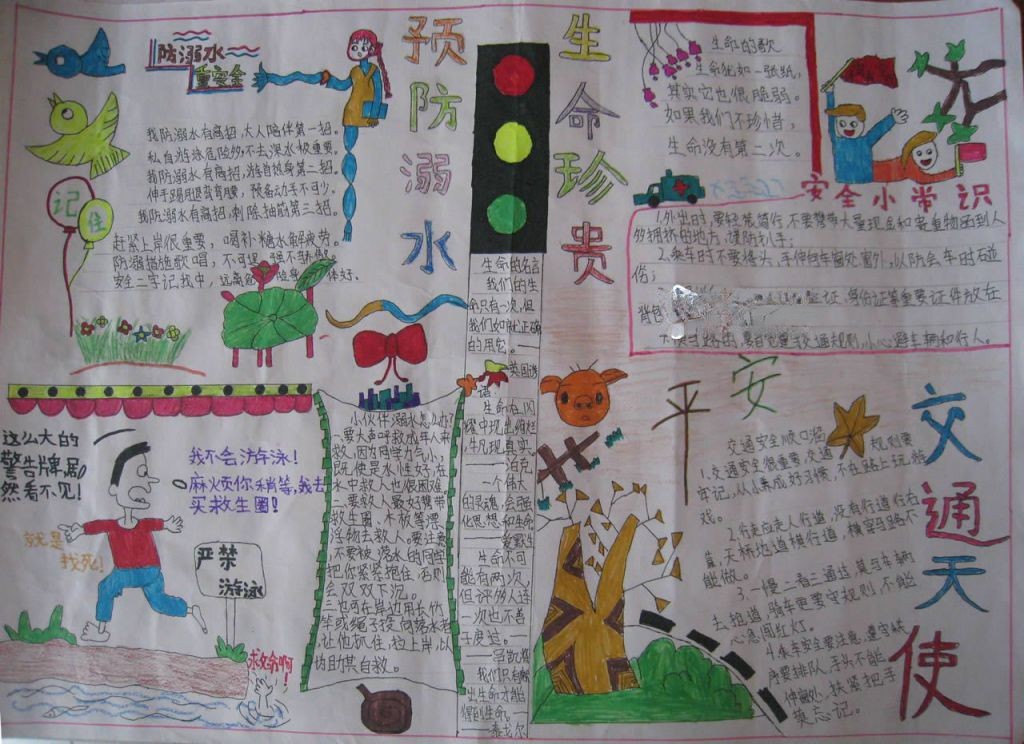 防溺水
重安全
预防溺水
我防溺水有高招,大人陪伴第一招。
私自游泳危险多不去深水极重要。
我防溺水有高招,游前效身第二招。
伸手踢腿还弯弯腰,预备动手不可少。
我防溺水有高招,剔除抽筋第三招。
赶紧上岸很重要,喝补糖水解疲劳。
防溺措施歌唱,不
安全二字记我中,远离危
记住
这么大的
警告牌,居
然看不见!
我不会游泳!
麻烦你稍等,我去
买救生圈!
就是
找死!
严禁
游泳
求救命啊!
小伙伴溺水怎么办?
一要大声呼救成年人来
救,因为同学力气小,
既使是水性好,在
水中救人也很困难
二要救人最好携带
救生圈、木板等漂
浮物去救人。要注意
不要被溺水的同学
把你紧紧抱住,否则
会双双下沉。
三也可在岸边用长竹
竿或绳子投向落水者
让他抓住,拉上岸,以
协助其自救。
生命的名言
我们的生
命只有一次,但
我们如能正确
的用它。
英国谚
语
一个伟大
的灵魂,会强
化思想和生命
——爱默生
生命不可
能有两次,
但许多人连
一次也不善
于度过。
——吕凯特
我们只有献
出生命才能
得到生命。
——泰戈尔
生命珍贵
生命的歌
生命犹如一张纸,
其实它也很脆弱。
如果我们不珍惜,
生命没有第二次。
安全小常识
1.外出时,要轻装简行,不要携带大量现金和贵重物品到人
多拥挤的地方,谨防扒手;
2.乘车时不要将头、手伸向车窗处窗外,以防会车时碰
伤;
证、身份证等重要证件放在
背包
交通规则,小心避车辆和行人。
平安
交通天使
交通安全顺口溜
1.交通安全很重要,交通规则要
牢记,从小养成好习惯,不在路上玩游
戏。
2.行走应走人行道,没有行道往右
靠,天桥地道横行道,横穿马路不
能做。
3.一慢二看三通过,莫与车辆
去抢道,骑车更要守规则,不能
心急闯红灯。
4.乘车安全要注意,遵守秩
序要排队,手头不能
伸窗外,扶紧把手
莫忘记。